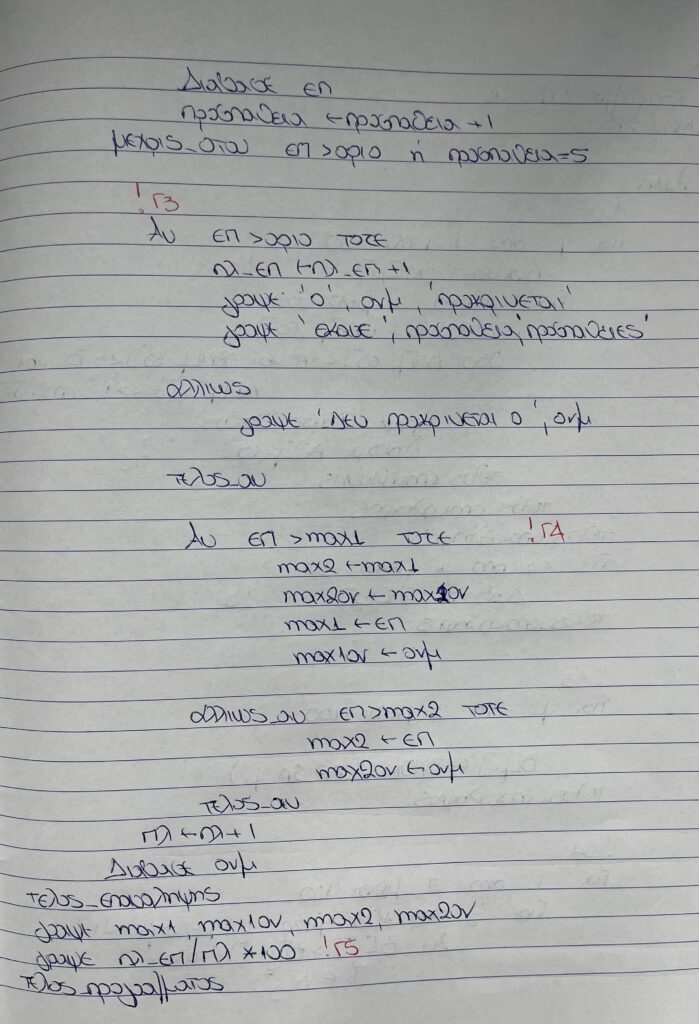 Διαβασε επ
προσπαθεια ← προσπαθεια +1
μεχρις_οτου επ > οριο ή προσπαθεια=5
!Γ3
Αν επ > οριο τοτε
πλ_επ ← πλ_επ +1
γραψε 'ο', ονμ, 'προκρινεται'
γραψε 'εκανε', προσπαθεια, 'προσπαθειες'
αλλιως
γραψε 'Δεν προκρινεται ο', ονμ
τελος_αν
Αν επ > max1 τοτε !Γ4
max2 ← max1
max2ον ← max1ον
max1 ← επ
max1ον ← ονμ
αλλιως_αν επ > max2 τοτε
max2 ← επ
max2ον ← ονμ
τελος_αν
πλ ← πλ + 1
Διαβασε ονμ
τελος_επαναληψης
γραψε max1, max1ον, max2, max2ον
γραψε πλ_επ/πλ *100 !Γ5
τελος_προγραμματος